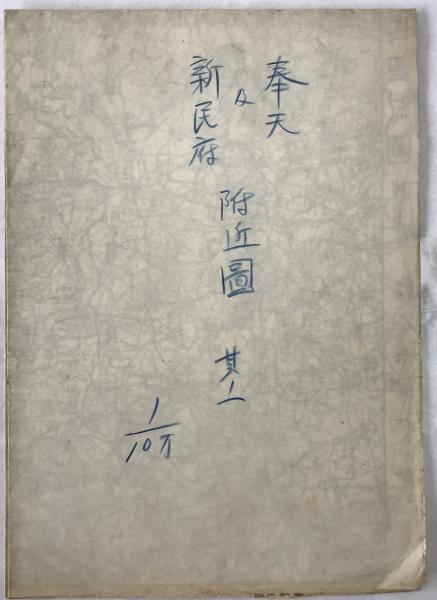 奉天
及
新民府
附近圖
其一
1/10万